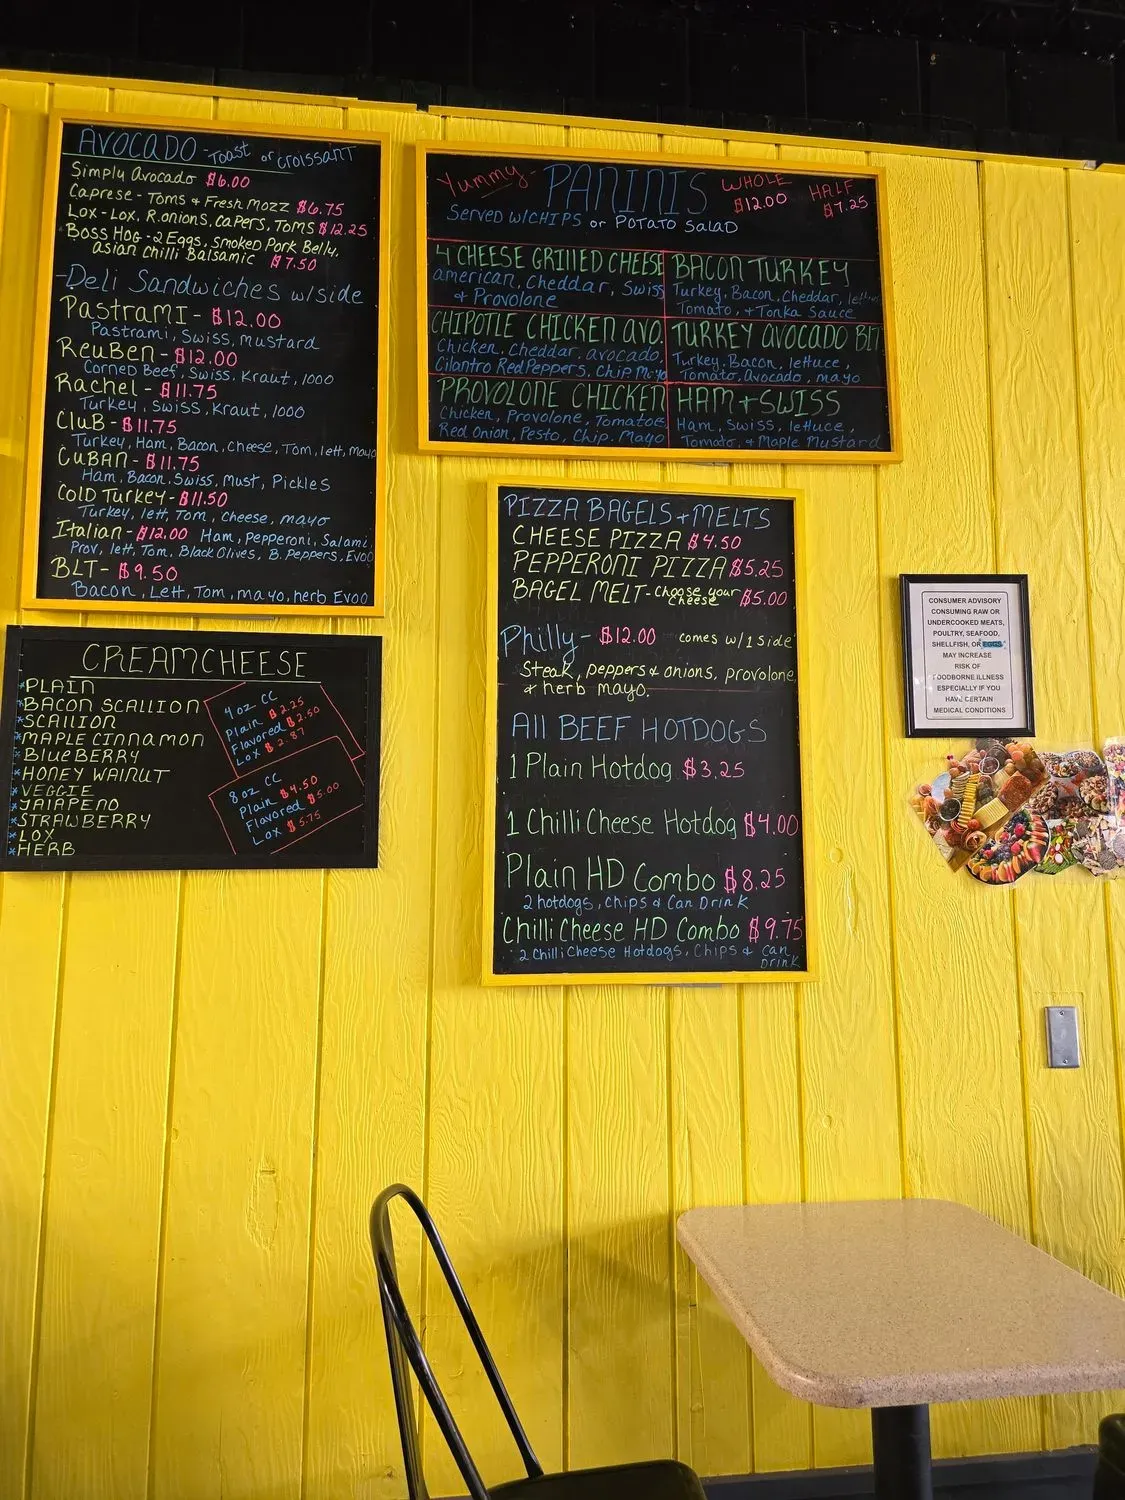 AVOCADO - Toast or Croissant
Simply Avocado $6.00
Caprese - Toms & Fresh Mozz $6.75
Lox - Lox, R.onions, capers, Toms $12.25
Boss Hog - 2 Eggs, smoked Pork Belly,
asian chilli Balsamic $7.50
- Deli Sandwiches w/side
Pastrami - $12.00
Pastrami, Swiss, mustard
Reuben - $12.00
Corned Beef, Swiss, Kraut, 1000
Rachel - $11.75
Turkey, Swiss, Kraut, 1000
Club - $11.75
Turkey, Ham, Bacon, Cheese, Tom, lett, mayo
Cuban - $11.75
Ham, Bacon, Swiss, Must, Pickles
Cold Turkey - $11.50
Turkey, lett, Tom, cheese, mayo
Italian - $12.00 Ham, Pepperoni, Salami,
Prov, lett, Tom, Black Olives, B. Peppers, Evoo
BLT - $9.50
Bacon, Lett, Tom, mayo, herb Evoo
Yummy - PANINIS WHOLE $12.00 HALF $7.25
SERVED W/CHIPS or POTATO SALAD
4 CHEESE GRILLED CHEESE
american, Cheddar, Swiss
& Provolone
BACON TURKEY
Turkey, Bacon, Cheddar,
Tomato, + Tonka Sauce
CHIPOTLE CHICKEN AVO.
Chicken, Cheddar, avocado,
Cilantro Red Peppers, Chip Mayo
TURKEY AVOCADO BLT
Turkey, Bacon, lettuce,
Tomato, Avocado, mayo
PROVOLONE CHICKEN
Chicken, Provolone, Tomatoes,
Red Onion, Pesto, Chip. Mayo
HAM + SWISS
Ham, Swiss, lettuce,
Tomato, & Maple Mustard
PIZZA BAGELS + MELTS
CHEESE PIZZA $4.50
PEPPERONI PIZZA $5.25
BAGEL MELT - choose your cheese $5.00
Philly - $12.00 comes w/1 side
Steak, peppers & onions, provolone,
& herb mayo.
All BEEF HOTDOGS
1 Plain Hotdog $3.25
1 Chilli Cheese Hotdog $4.00
Plain HD Combo $8.25
2 hotdogs, Chips & Can Drink
Chilli Cheese HD Combo $9.75
2 Chilli Cheese Hotdogs, Chips & Can
Drink
CREAMCHEESE
*PLAIN
*BACON SCALLION
*SCALLION
*MAPLE CINNAMON
*BLUEBERRY
*HONEY WALNUT
*VEGGIE
*JALAPENO
*STRAWBERRY
*LOX
*HERB
4 oz CC
Plain $2.25
Flavored $2.50
Lox $2.87
8 oz CC
Plain $4.50
Flavored $5.00
Lox $5.75
CONSUMER ADVISORY
CONSUMING RAW OR
UNDERCOOKED MEATS,
POULTRY, SEAFOOD,
SHELLFISH, OR EGGS
MAY INCREASE
RISK OF
FOODBORNE ILLNESS
ESPECIALLY IF YOU
HAVE CERTAIN
MEDICAL CONDITIONS